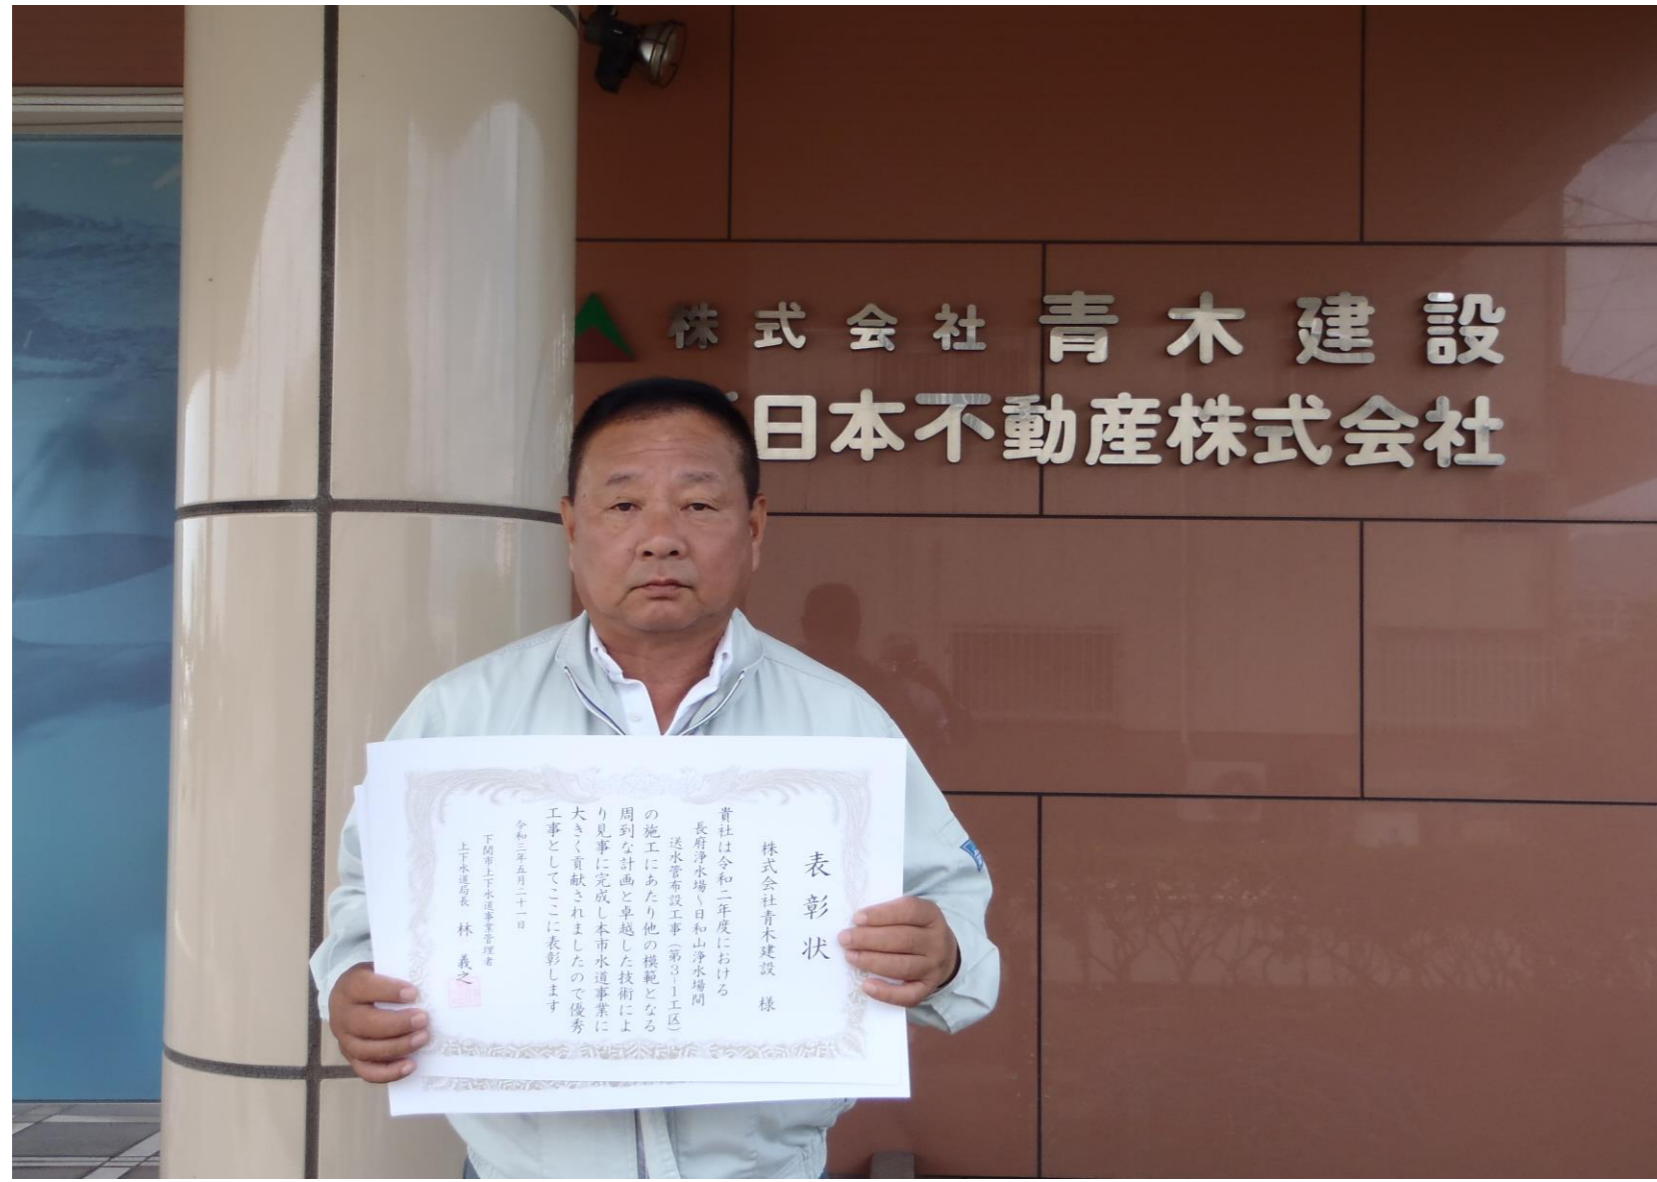 株式会社 青木建設
日本不動産株式会社
表彰状
株式会社青木建設 様
貴社は令和二年度における
長府浄水場~日和山浄水場間
送水管布設工事(第3-1工区)
の施工にあたり他の模範となる
周到な計画と卓越した技術によ
り見事に完成し本市水道事業に
大きく貢献されましたので優秀
工事としてここに表彰します
令和三年五月二十一日
下関市上下水道事業管理者
上下水道局長 林 義之